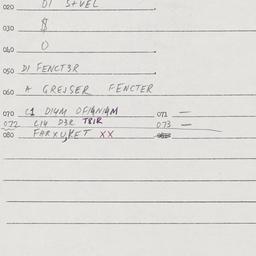 020 DI STVEL
030 $
040 0
050 DI FENCT3R
060 A GREJSER FENCTER
070 C1 DI4M 071 —
072 CI4 D3R TBIR 073 —
080 FARXUKET XX